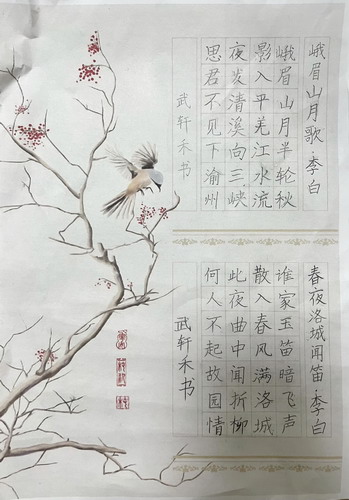 峨眉山月歌 李白
峨眉山月半轮秋
影入平羌江水流
夜发清溪向三峡
思君不见下渝州
武轩禾书
春夜洛城闻笛 李白
谁家玉笛暗飞声
散入春风满洛城
此夜曲中闻折柳
何人不起故园情
武轩禾书